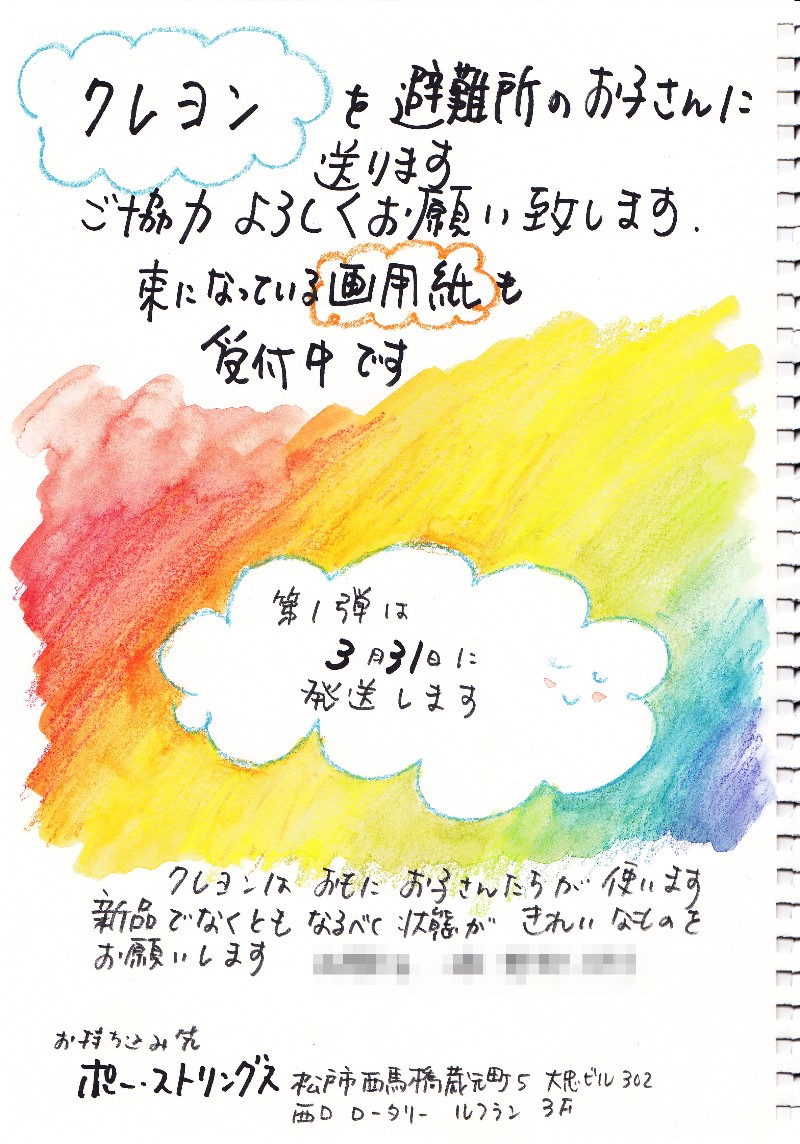 クレヨンを避難所のお子さんに
送ります
ご協力よろしくお願い致します.
束になっている画用紙も
受付中です
第1弾は
3月31日に
発送します
クレヨンは おもに お子さんたちが 使います
新品でなくとも なるべく状態が きれいなものを
お願いします
お持ち込み先
ポー・ストリングス 松戸市西馬橋蔵元町5 大忠ビル302
西口 ロータリー ルフラン 3F